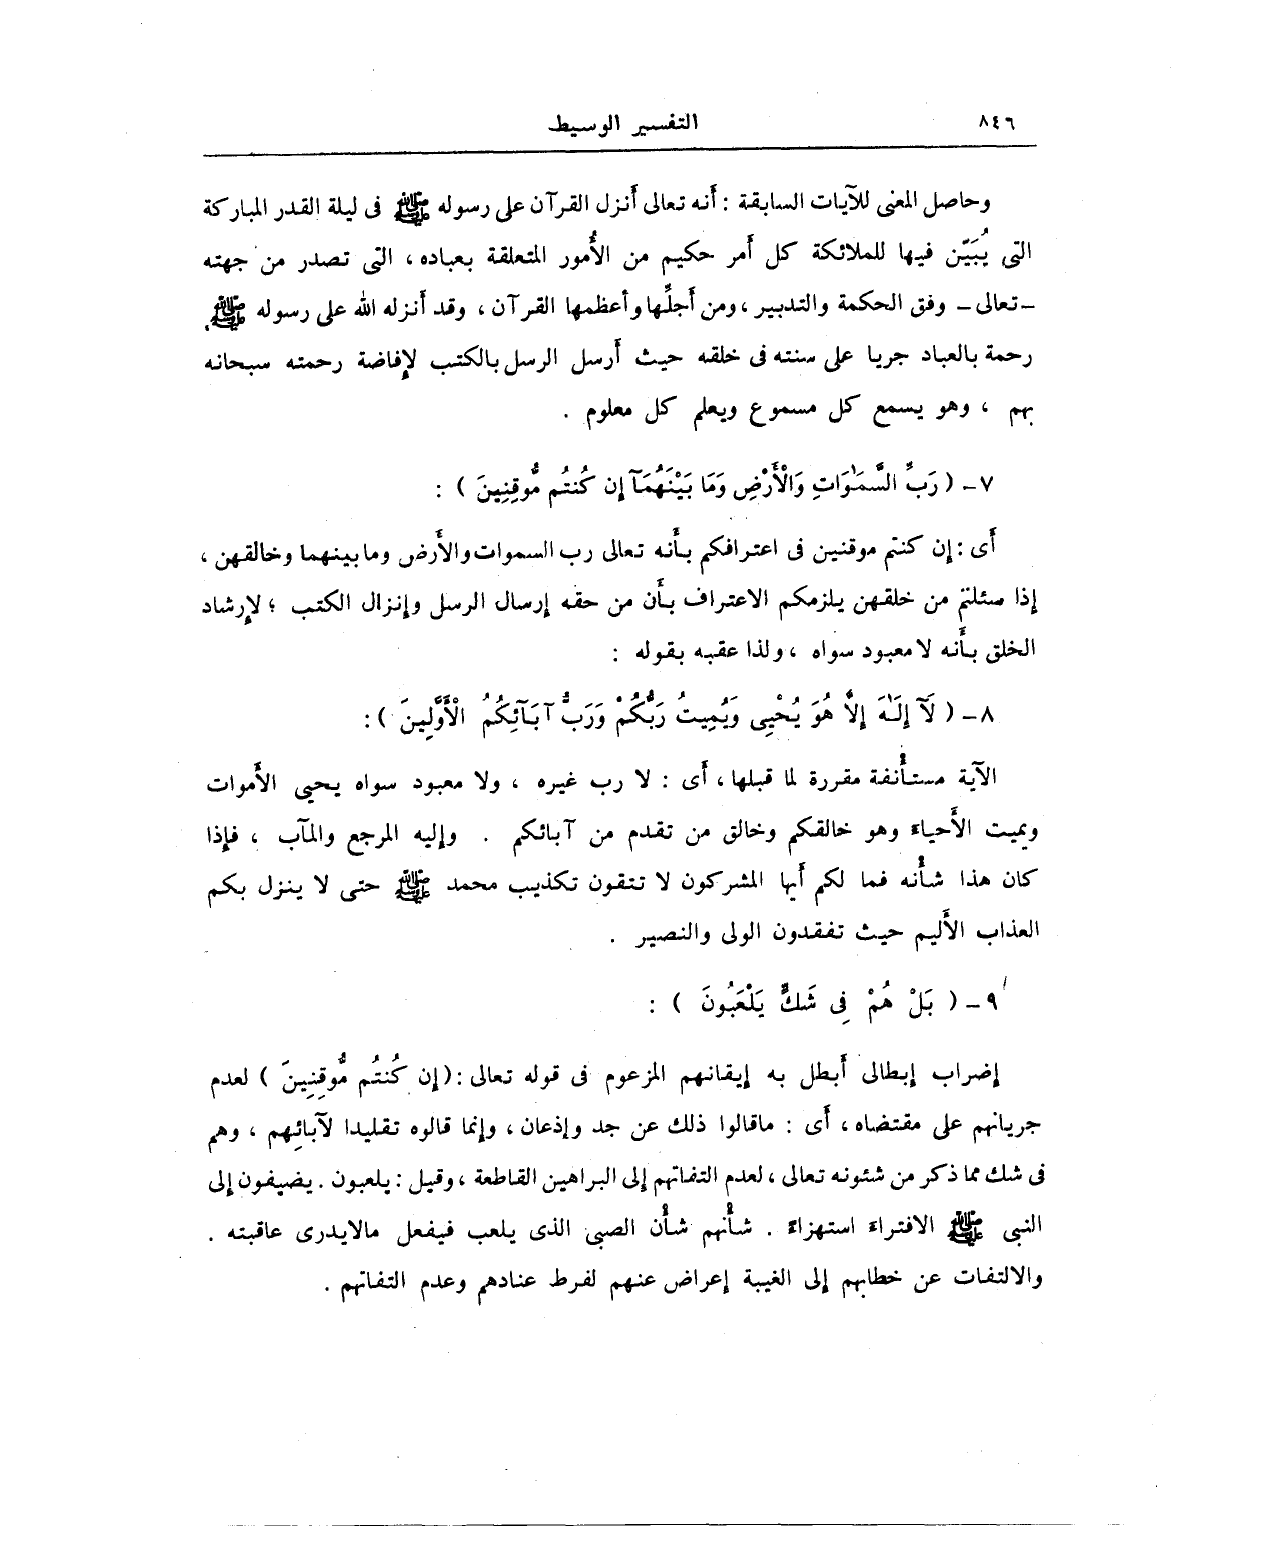 ٨٤٦ التفسير الوسيط
وحاصل المعنى للآيات السابقة : أنه تعالى أنزل القرآن على رسوله ﷺ فى ليلة القدر المباركة
التى يُبَيّن فيها للملائكة كل أمر حكيم من الأُمور المتعلقة بعباده ، التى تصدر من جهته
ـ تعالى ـ وفق الحكمة والتدبير ، ومن أجلِّها وأعظمها القرآن ، وقد أنزله الله على رسوله ﷺ
رحمة بالعباد جريا على سنته فى خلقه حيث أرسل الرسل بالكتب لإفاضة رحمته سبحانه
بهم ، وهو يسمع كل مسموع ويعلم كل معلوم .
٧ ـ ( رَبِّ السَّمَٰوَاتِ وَالْأَرْضِ وَمَا بَيْنَهُمَآ إِن كُنتُم مُّوقِنِينَ ) :
أى : إن كنتم موقنين فى اعترافكم بأنه تعالى رب السموات والأرض وما بينهما وخالقهن ،
إذا سئلتم من خلقهن يلزمكم الاعتراف بأن من حقه إرسال الرسل وإنزال الكتب ؛ لإرشاد
الخلق بأنه لا معبود سواه ، ولذا عقبه بقوله :
٨ ـ ( لَآ إِلَٰهَ إِلَّا هُوَ يُحْيِى وَيُمِيتُ رَبُّكُمْ وَرَبُّ آبَآئِكُمُ الْأَوَّلِينَ ) :
الآية مستأنفة مقررة لما قبلها ، أى : لا رب غيره ، ولا معبود سواه يحيى الأموات
ويميت الأحياء وهو خالقكم وخالق من تقدم من آبائكم . وإليه المرجع والمآب ، فإذا
كان هذا شأنه فما لكم أيها المشركون لا تتقون تكذيب محمد ﷺ حتى لا ينزل بكم
العذاب الأليم حيث تفقدون الولى والنصير .
٩ ـ ( بَلْ هُمْ فِى شَكٍّ يَلْعَبُونَ ) :
إضراب إبطالى أبطل به إيقانهم المزعوم فى قوله تعالى : ( إِن كُنتُم مُّوقِنِينَ ) لعدم
جريانهم على مقتضاه ، أى : ماقالوا ذلك عن جد وإذعان ، وإنما قالوه تقليدا لآبائِهم ، وهم
فى شك مما ذكر من شئونه تعالى ، لعدم التفاتهم إلى البراهين القاطعة ، وقيل : يلعبون . يضيفون إلى
النبى ﷺ الافتراء استهزاء . شأنهم شأن الصبى الذى يلعب فيفعل مالايدرى عاقبته .
والالتفات عن خطابهم إلى الغيبة إعراض عنهم لفرط عنادهم وعدم التفاتهم .